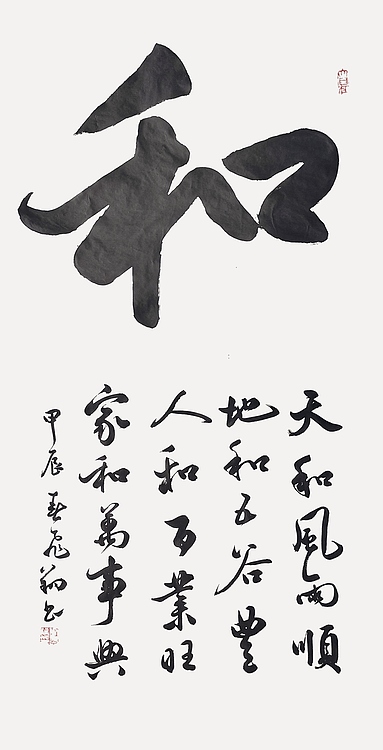 和
天和風雨順
地和五谷豐
人和百業旺
家和萬事興
甲辰春飛翁書